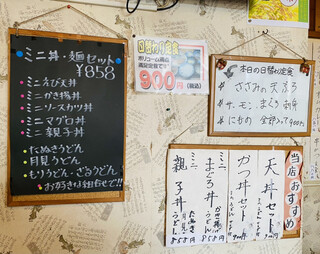 ミニ丼・麺セット
¥858
ミニえび天丼
ミニかき揚丼
ミニソースカツ丼
ミニマグロ丼
ミニ親子丼
たぬきうどん
月見うどん
もりうどん・ざるうどん
お好きな組合せで!!
日替り定食
ボリューム満点
900円
(税込)
本日の日替り定食
ささみの天ぷら
サーモン、まぐろ刺身
当店おすすめ
天丼セット
かつ丼セット
ミニまぐろ丼
うどん
858円
ミニ親子丼
たぬき
うどん
858円